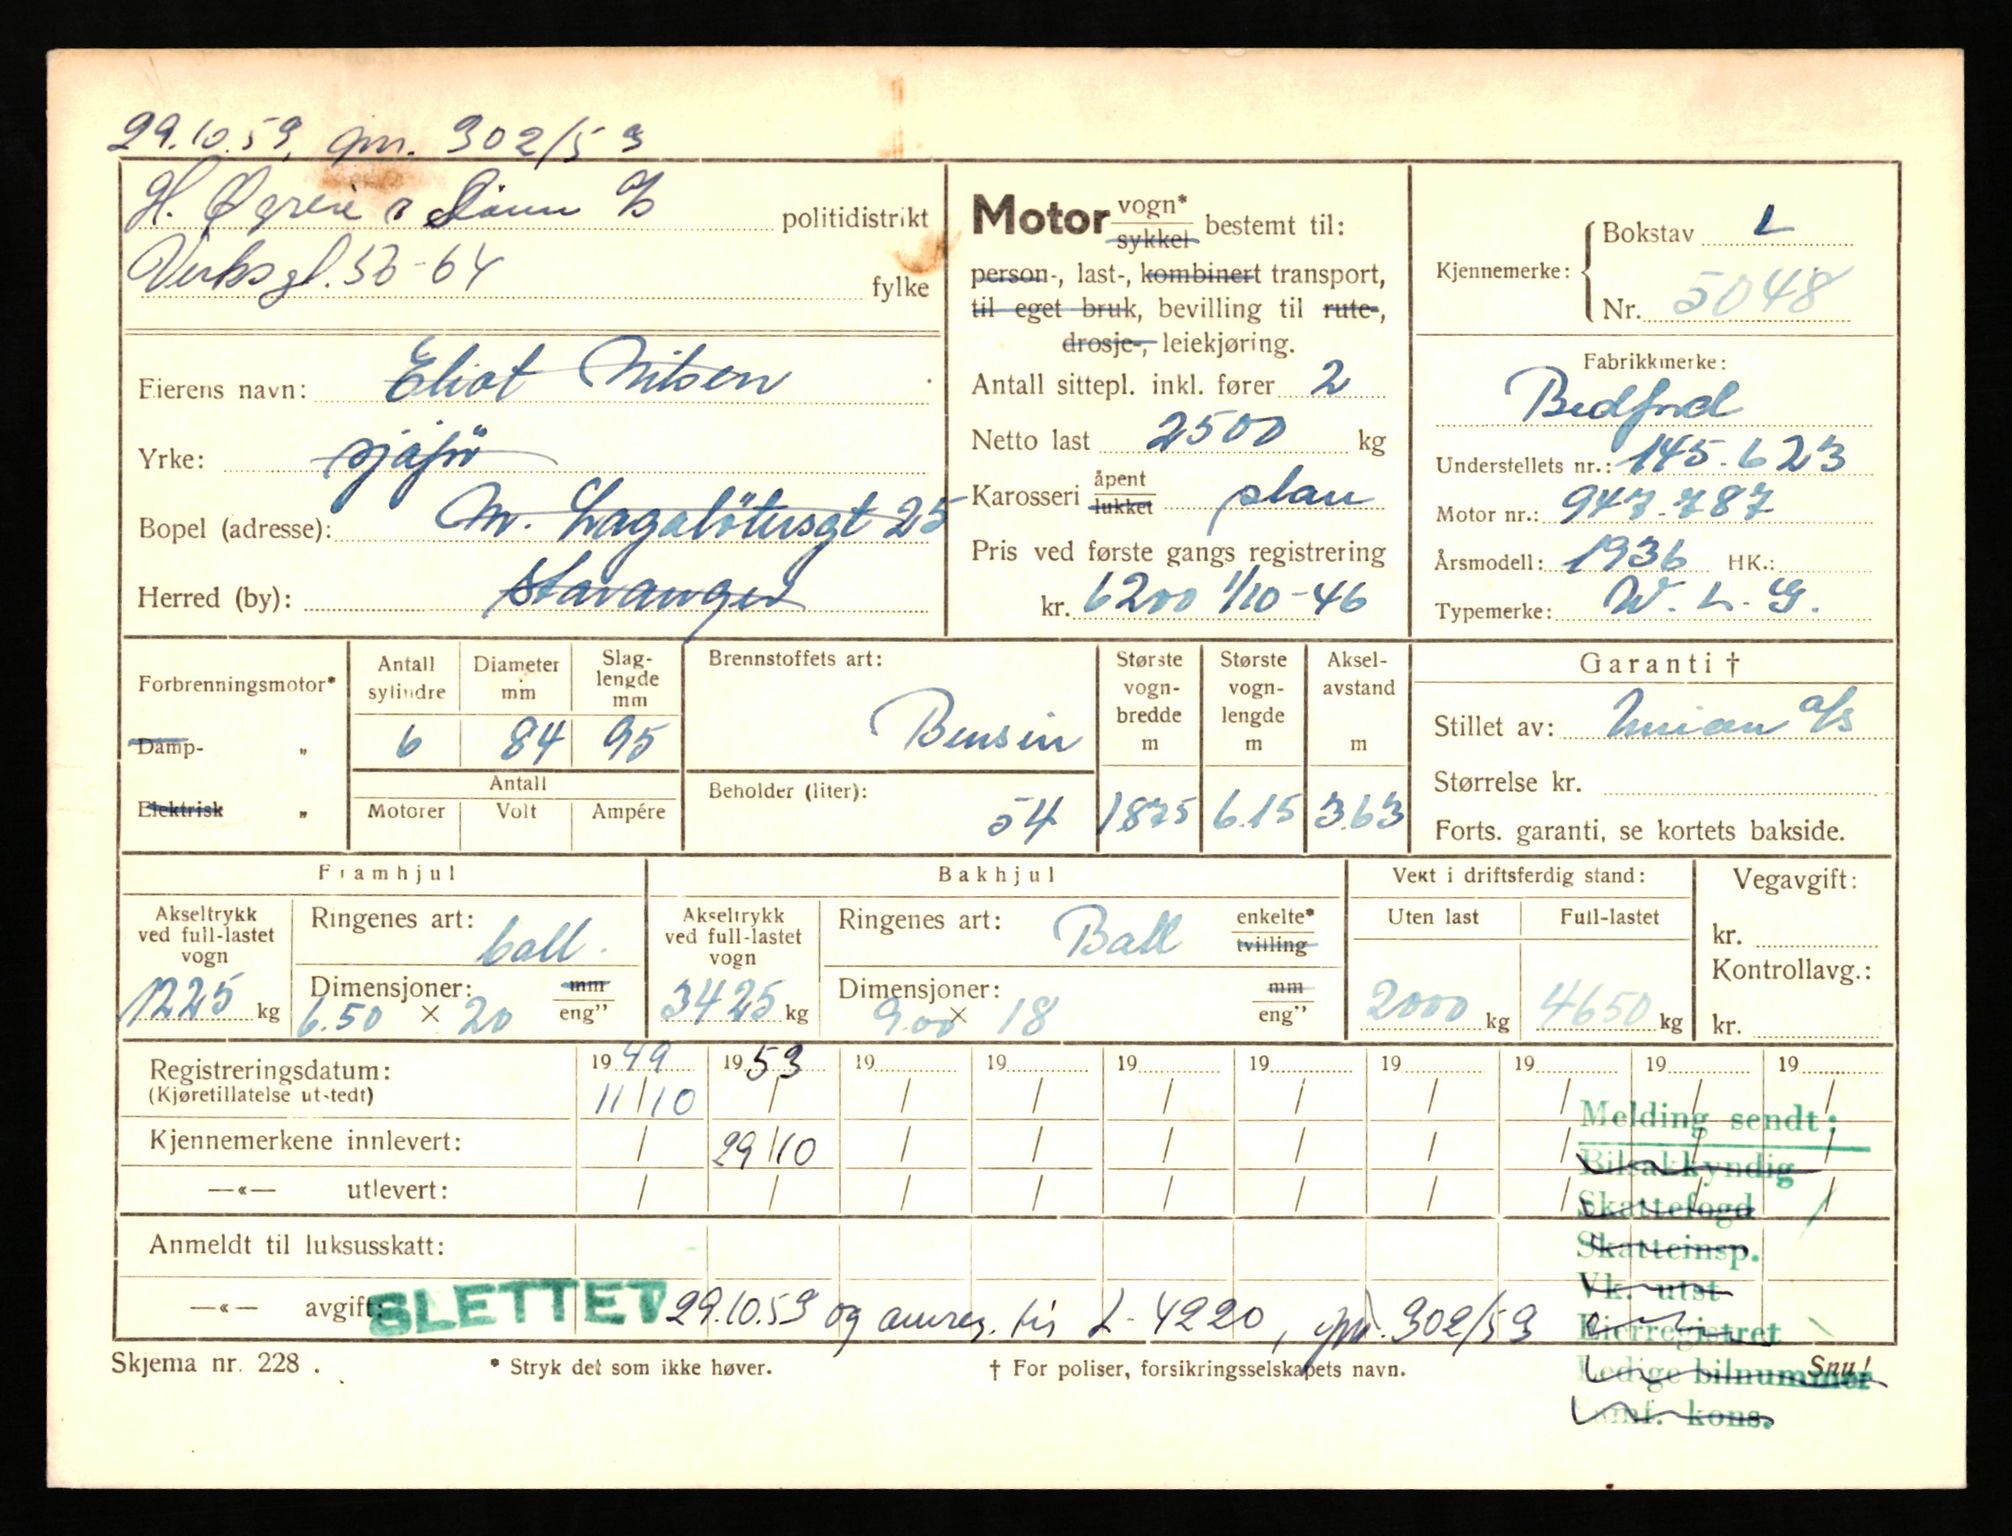 29.10.53, gm. 302/53
H. Øgreie & Sønn A/S politidistrikt
Verksgt. 56-64 fylke
Eierens navn: Eliot Nilsen
Yrke: sjåfør
Bopel (adresse): M. Lagabötersgt 25
Herred (by): Stavanger
Motor vogn* sykkel bestemt til:
person-, last-, kombinert transport,
til eget bruk, bevilling til rute-,
drosje-, leiekjøring.
Antall sittepl. inkl. fører 2
Netto last 2500 kg
Karosseri åpent lukket plan
Pris ved første gangs registrering
kr. 6200 1/10-46
Kjennemerke: Bokstav L
Nr. 5048
Fabrikkmerke:
Bedford
Understellets nr.: 145.623
Motor nr.: 947.787
Årsmodell: 1936 HK.:
Typemerke: W. L. G.
Forbrenningsmotor*
Damp- "
Elektrisk "
Antall sylindre Diameter mm Slag-lengde mm
6 84 95
Antall
Motorer Volt Ampére
Brennstoffets art:
Bensin
Beholder (liter):
54
Største vogn-bredde m Største vogn-lengde m Aksel-avstand m
1875 6.15 3.63
Garanti †
Stillet av: Union a/s
Størrelse kr.
Forts. garanti, se kortets bakside.
Framhjul
Akseltrykk ved full-lastet vogn
1225 kg
Ringenes art: ball.
Dimensjoner: mm eng"
6.50 × 20
Bakhjul
Akseltrykk ved full-lastet vogn
3425 kg
Ringenes art: Ball enkelte* tvilling
Dimensjoner: mm eng"
9.00 × 18
Vekt i driftsferdig stand:
Uten last Full-lastet
2000 kg 4650 kg
Vegavgift:
kr.
Kontrollavg.:
kr.
Registreringsdatum: 1949 1953 19 19 19 19 19 19 19 19
(Kjøretillatelse utstedt) 11/10 / / / / / / / / /
Kjennemerkene innlevert: / 29/10 / / / / / / / /
—«— utlevert: / / / / / / / / / /
Anmeldt til luksusskatt:
—«— avgift: SLETTET 29.10.53 og omreg. til L-4220, gm. 302/53
Melding sendt:
Bilsakkyndig
Skattefogd
Skatteinsp.
Vk. utst
Eierregistret
Ledige bilnummer
kons.
Skjema nr. 228. * Stryk det som ikke høver. † For poliser, forsikringsselskapets navn. Snu!